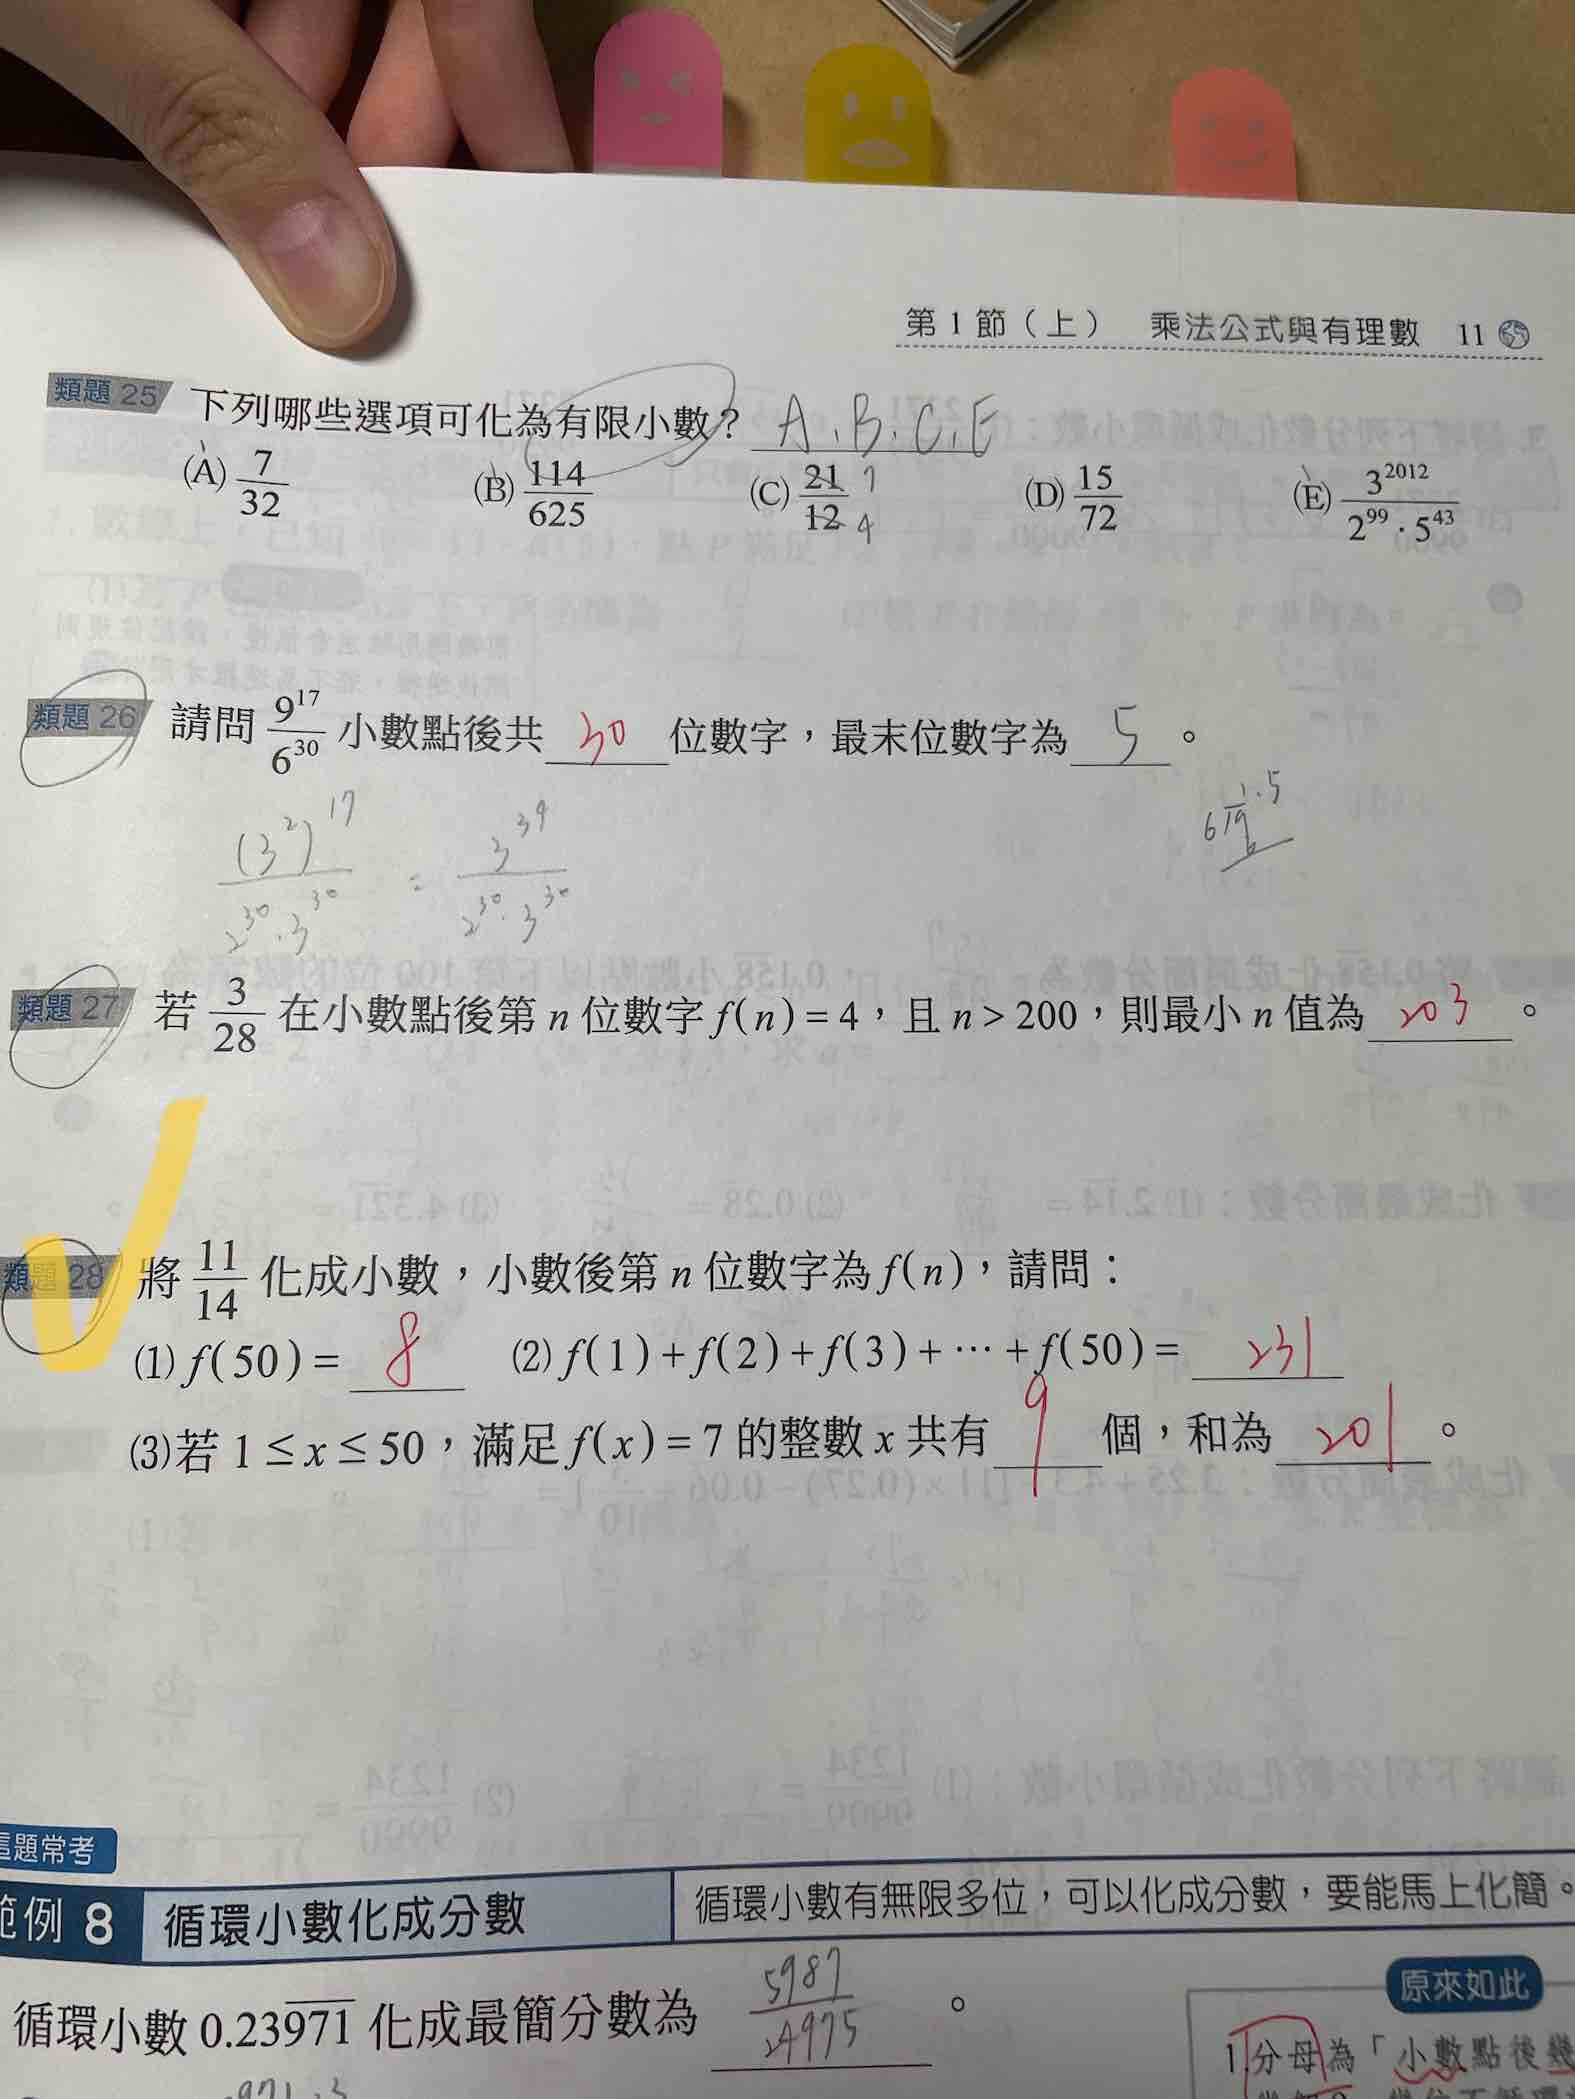 第 1 節（上） 乘法公式與有理數 11
類題 25 下列哪些選項可化為有限小數？ A、B、C、E
(A) 7/32 (B) 114/625 (C) 21/12 7 4 (D) 15/72 (E) 3^2012/2^99 · 5^43
類題 26 請問 9^17/6^30 小數點後共 30 位數字，最末位數字為 5 。
(3^2)^17/2^30 · 3^30 = 3^34/2^30 · 3^30
類題 27 若 3/28 在小數點後第 n 位數字 f(n) = 4，且 n > 200，則最小 n 值為 203 。
類題 28 將 11/14 化成小數，小數後第 n 位數字為 f(n)，請問：
(1) f(50) = 8 (2) f(1) + f(2) + f(3) + ⋯ + f(50) = 231
(3) 若 1 ≤ x ≤ 50，滿足 f(x) = 7 的整數 x 共有 9 個，和為 201 。
這題常考
範例 8 循環小數化成分數 循環小數有無限多位，可以化成分數，要能馬上化簡。
循環小數 0.23\overline{971} 化成最簡分數為 5987/24975 。
原來如此
1.分母為「小數點後幾